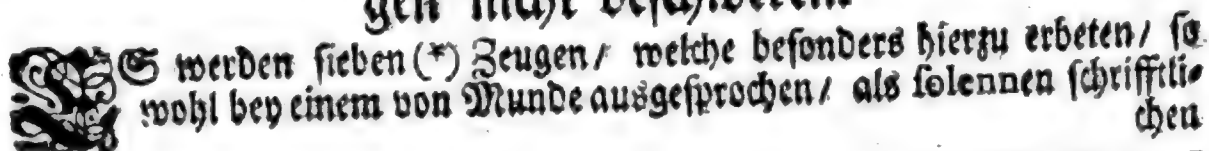 gen nicht beschweren.
ES werden sieben (*) Zeugen / welche besonders hierzu erbeten / so
wohl bey einem von Munde ausgesprochen / als solennen schrifftli-
chen